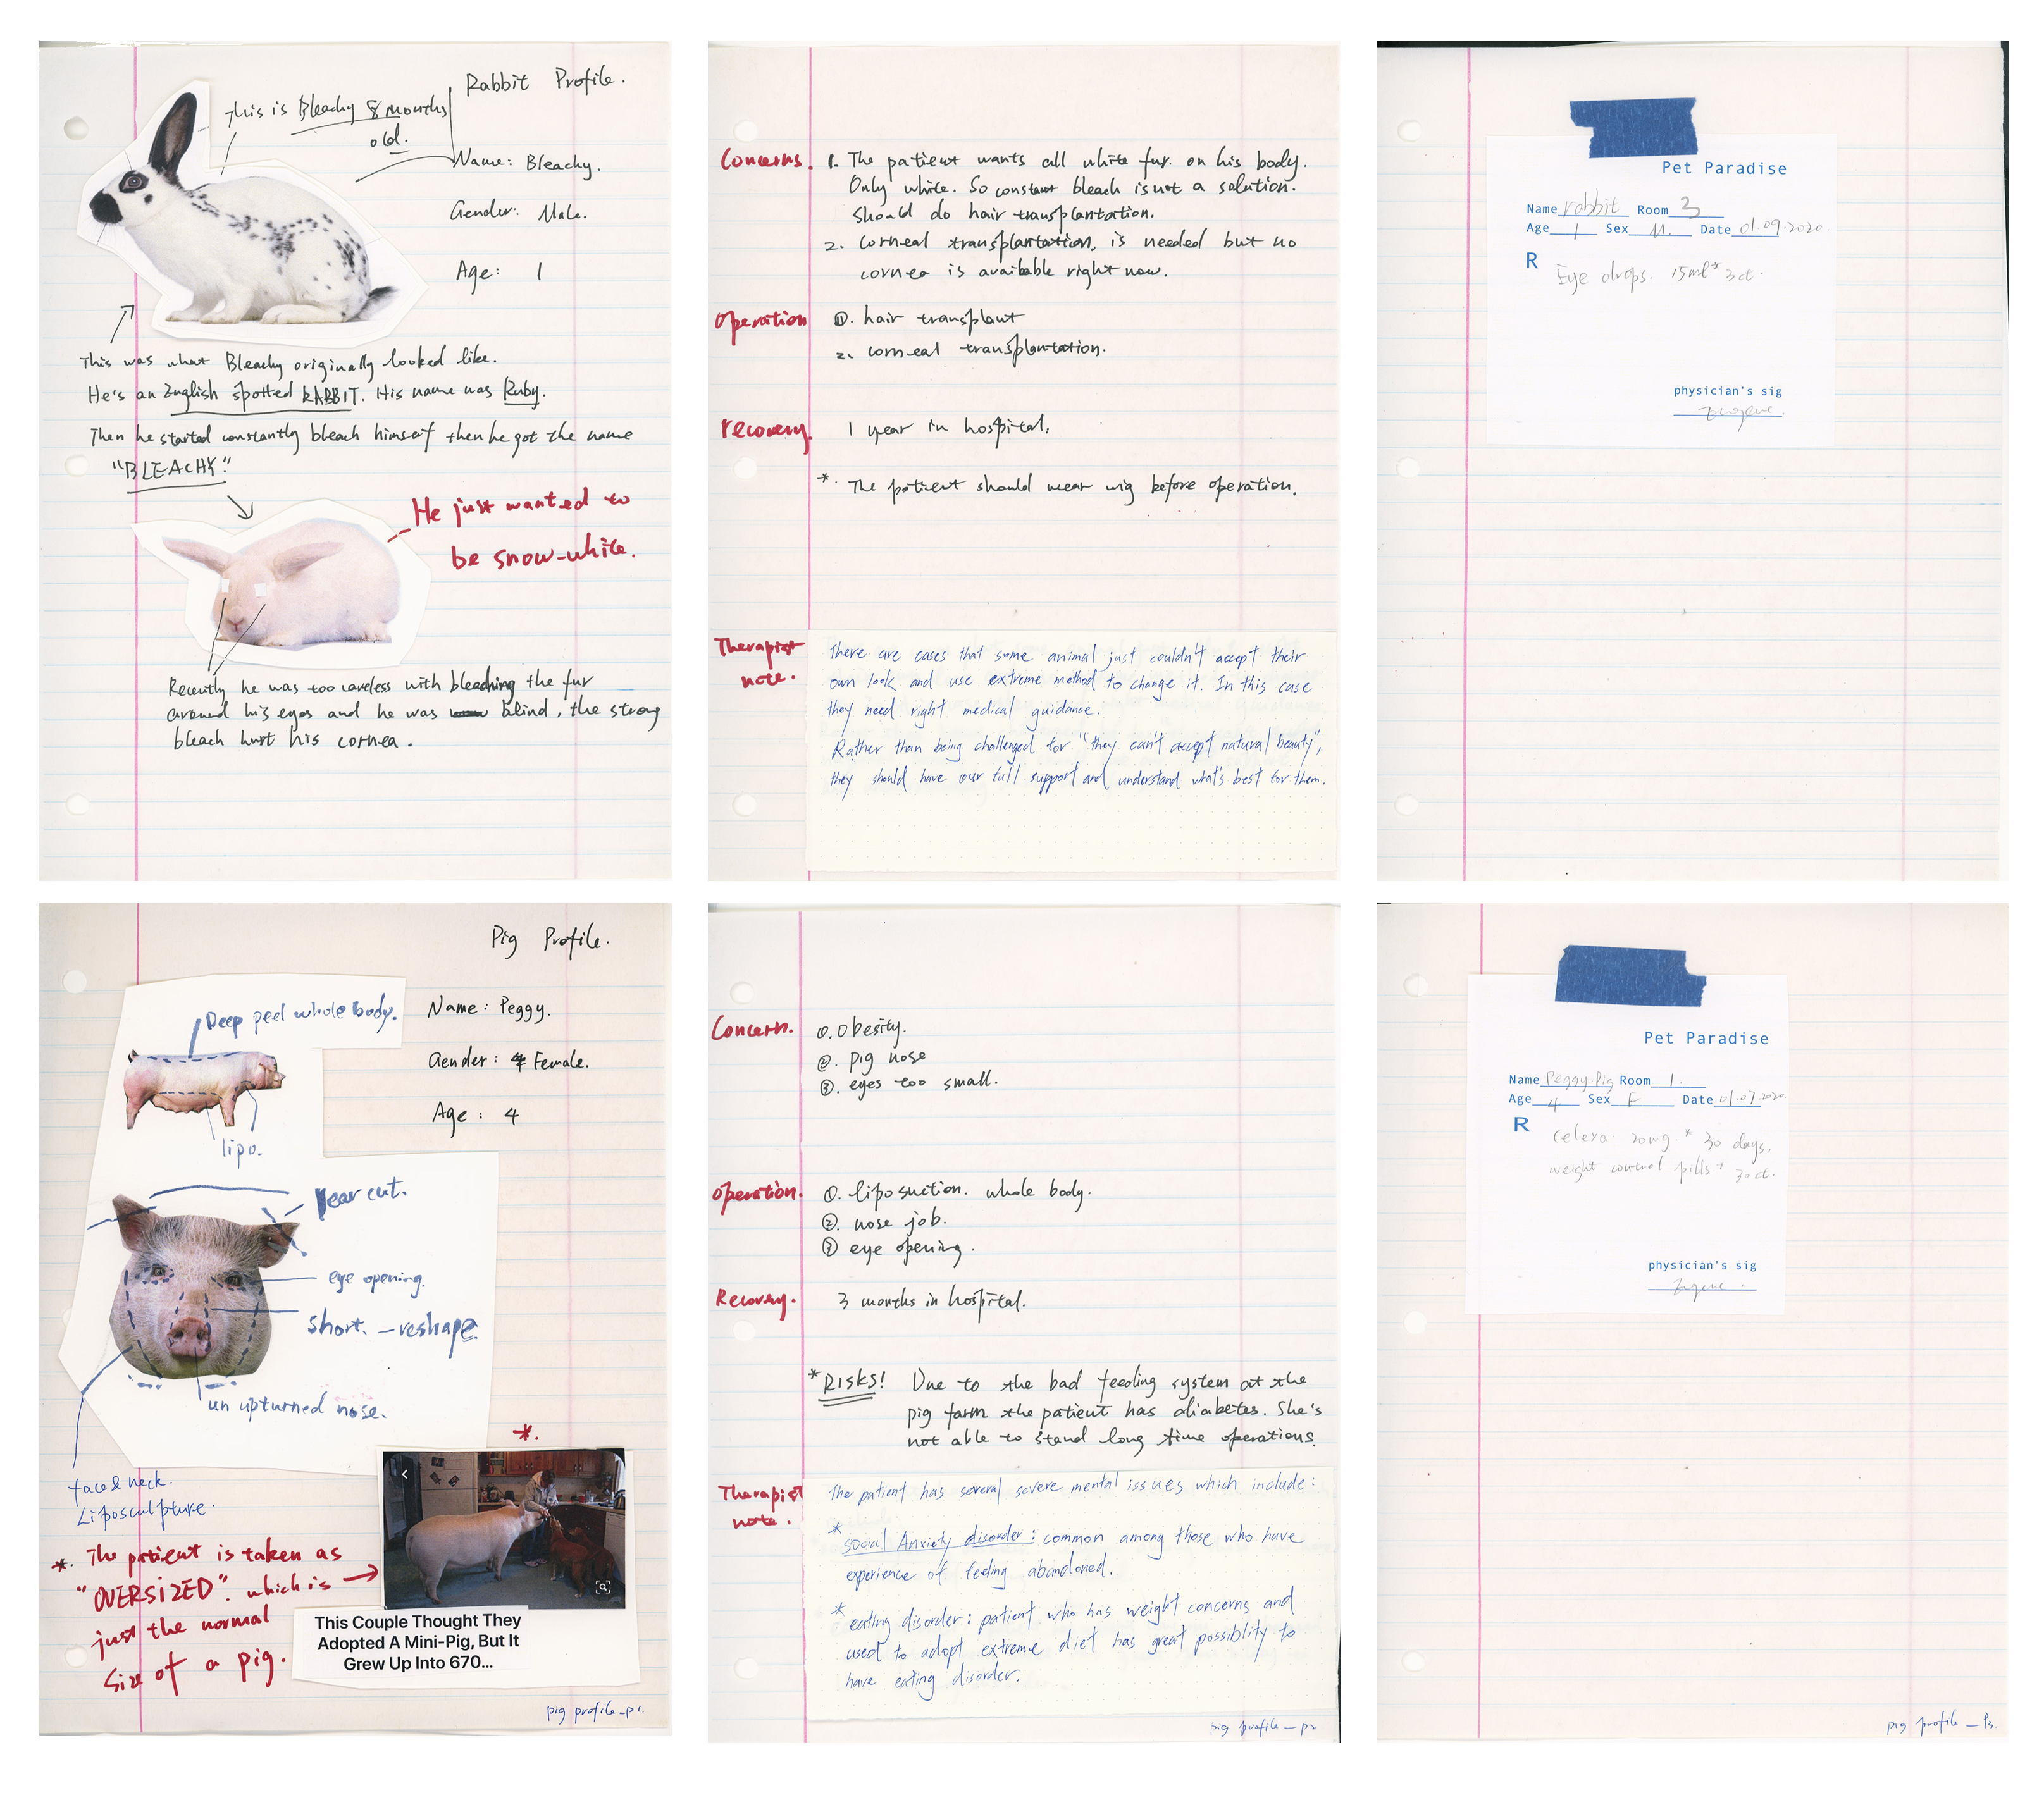 Rabbit Profile.
this is Bleachy 8 months
old.
Name: Bleachy.
Gender: Male.
Age: 1
This was what Bleachy originally looked like.
He's an English spotted RABBIT. His name was Ruby.
Then he started constantly bleach himself then he got the name
"BLEACHY."
He just wanted to
be snow-white.
Recently he was too careless with bleaching the fur
around his eyes and he was blind, the strong
bleach hurt his cornea.
Concerns. 1. The patient wants all white fur. on his body.
Only white. So constant bleach is not a solution.
Should do hair transplantation.
2. Corneal transplantation, is needed but no
cornea is available right now.
Operation ①. hair transplant
2. corneal transplantation.
recovery. 1 year in hospital.
*. The patient should wear wig before operation.
Therapist
note.
There are cases that some animal just couldn't accept their
own look and use extreme method to change it. In this case
they need right medical guidance.
Rather than being challenged for "they can't accept natural beauty",
they should have our full support and understand what's best for them.
Pet Paradise
Name rabbit Room 3
Age 1 Sex M. Date 01.09.2020.
R Eye drops. 15ml* 3 ct.
physician's sig
Pig Profile.
Deep peel whole body.
Name: Peggy.
Gender: Female.
Age: 4
lipo.
ear cut.
eye opening.
short. - reshape
un upturned nose.
face & neck.
Liposculpture.
*.
*. The patient is taken as
"OVERSIZED". which is
just the normal
size of a pig.
This Couple Thought They
Adopted A Mini-Pig, But It
Grew Up Into 670...
pig profile_p1.
Concern. ①. Obesity.
②. pig nose
③. eyes too small.
Operation. ①. liposuction. whole body.
②. nose job.
③ eye opening.
Recovery. 3 months in hospital.
*RISKS! Due to the bad feeding system at the
pig farm the patient has diabetes. She's
not able to stand long time operations.
Therapist
note.
The patient has several severe mental issues which include:
* Social Anxiety disorder: common among those who have
experience of feeling abandoned.
* eating disorder: patient who has weight concerns and
used to adopt extreme diet has great possiblity to
have eating disorder.
pig profile_p2
Pet Paradise
Name Peggy.Pig Room 1.
Age 4 Sex F Date 01.07.2020
R Celexa. 20mg. * 30 days.
weight control pills * 30 ct.
physician's sig
pig profile_P3.